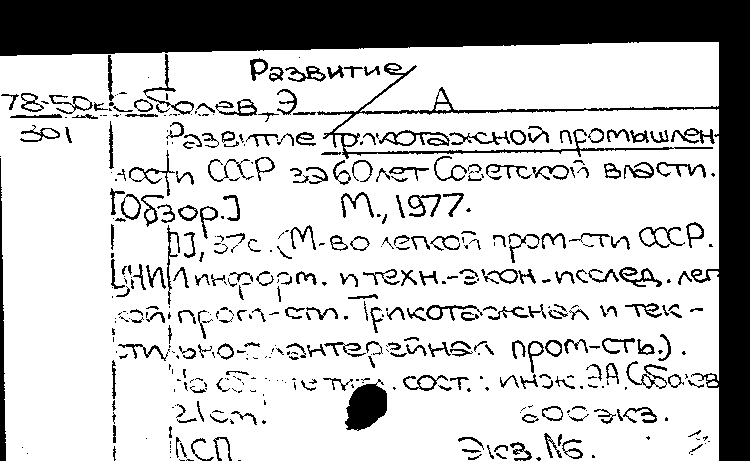 Развитие
78-50к Соболев, Э А
301 Развитие трикотажной промышлен-
ности СССР за 60 лет Советской власти.
[Обзор.] М., 1977.
[1], 37с. (М-во легкой пром-сти СССР.
ЦНИИ информ. и техн.-экон. исслед. лег
кой пром-сти. Трикотажная и тек-
стильно-галантерейная пром-сть.).
На обороте тит. сост.: инж. Э.А. Соболев
21 см. 600 экз.
ДСП. Экз. №6.